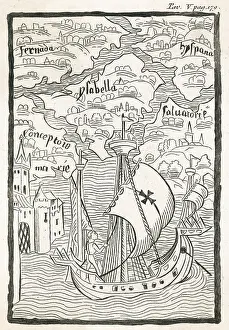 Tav. V. pag. 179.
Fernada
hyspana
Ysabella
Saluatorie
Conceptoio
marie